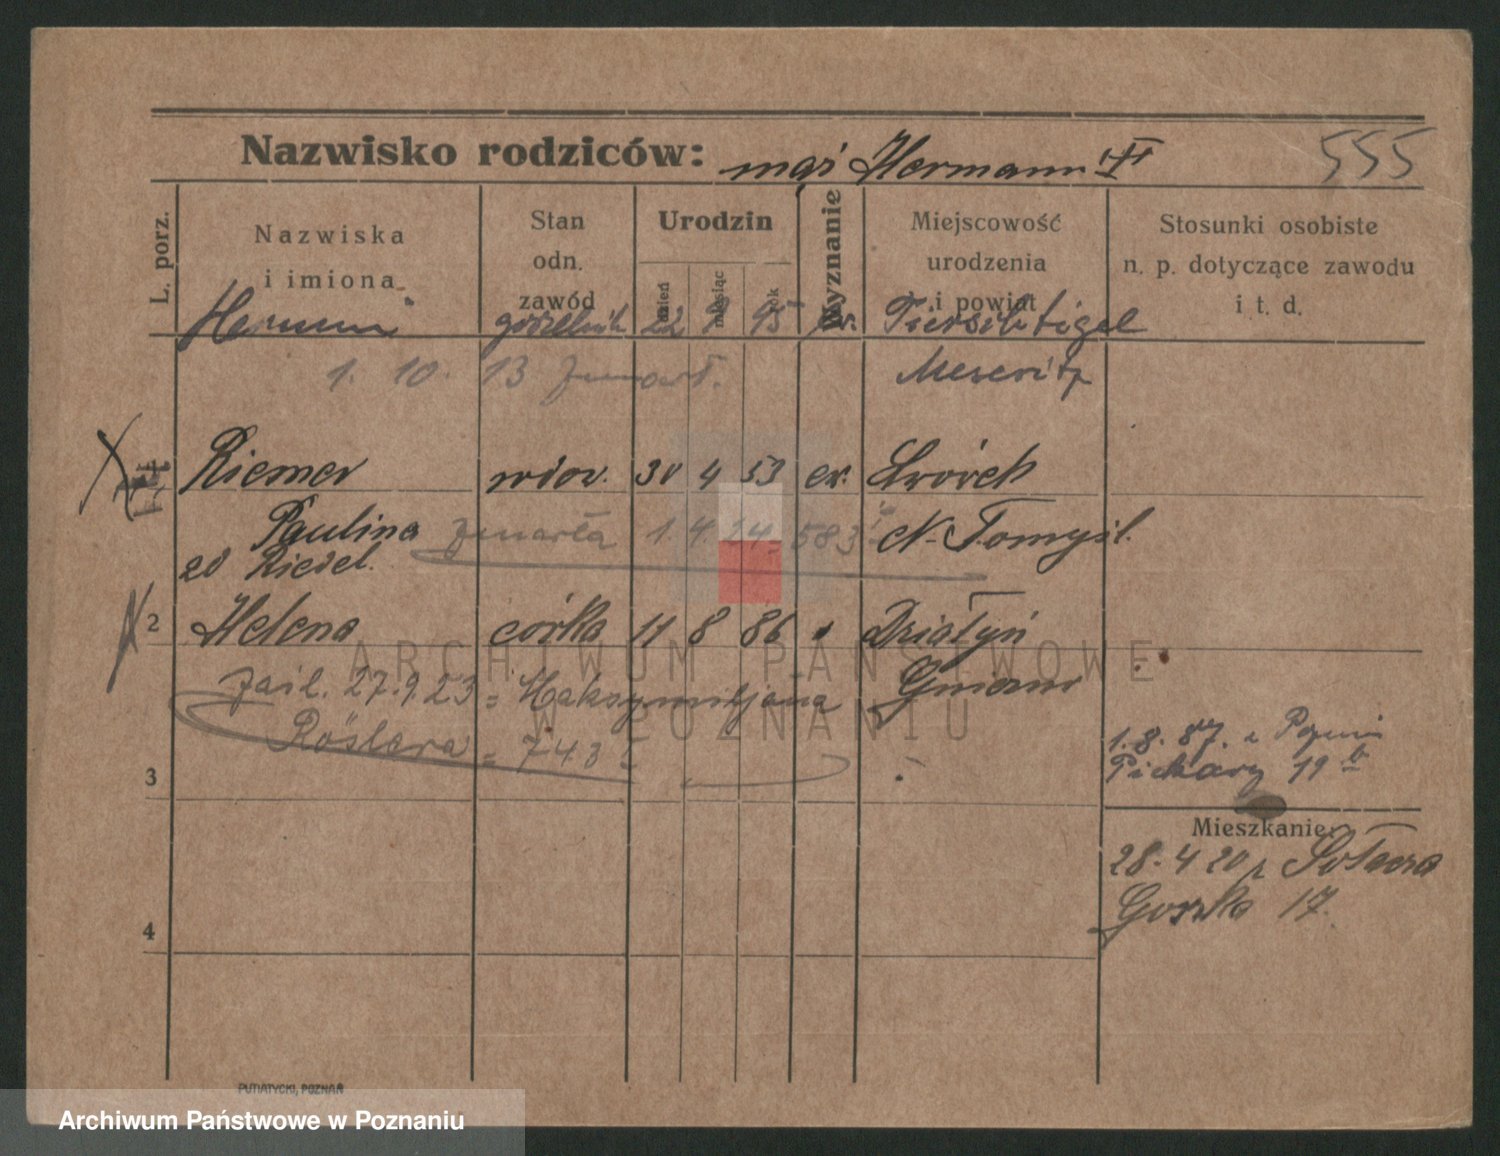 Nazwisko rodziców: mąż Hermann
555
L. porz.
Nazwiska
i imiona
Stan
odn.
zawód
Urodzin
dzień
miesiąc
rok
Wyznanie
Miejscowość
urodzenia
i powiat
Stosunki osobiste
n. p. dotyczące zawodu
i t. d.
Hermann 22 9 95 ew. Tirschtigel
1. 10. 13 Meseritz
Riemer wdow. 30 4 53 ew. Lwówek
Paulina zmarła 1. 4. 24 = 583 N. Tomyśl.
zd Riedel.
2 Helena córka 11 8 86 " Działyń
zaśl. 27.9.23 = Maksymiljana Gniezno
Röslera = 743
1. 8. 87.
3 Piekary 19 b
Mieszkanie:
28. 4 20 Sołacza
4 17.
PUTIATYCKI, POZNAŃ
ARCHIWUM PAŃSTWOWE
W POZNANIU
Archiwum Państwowe w Poznaniu